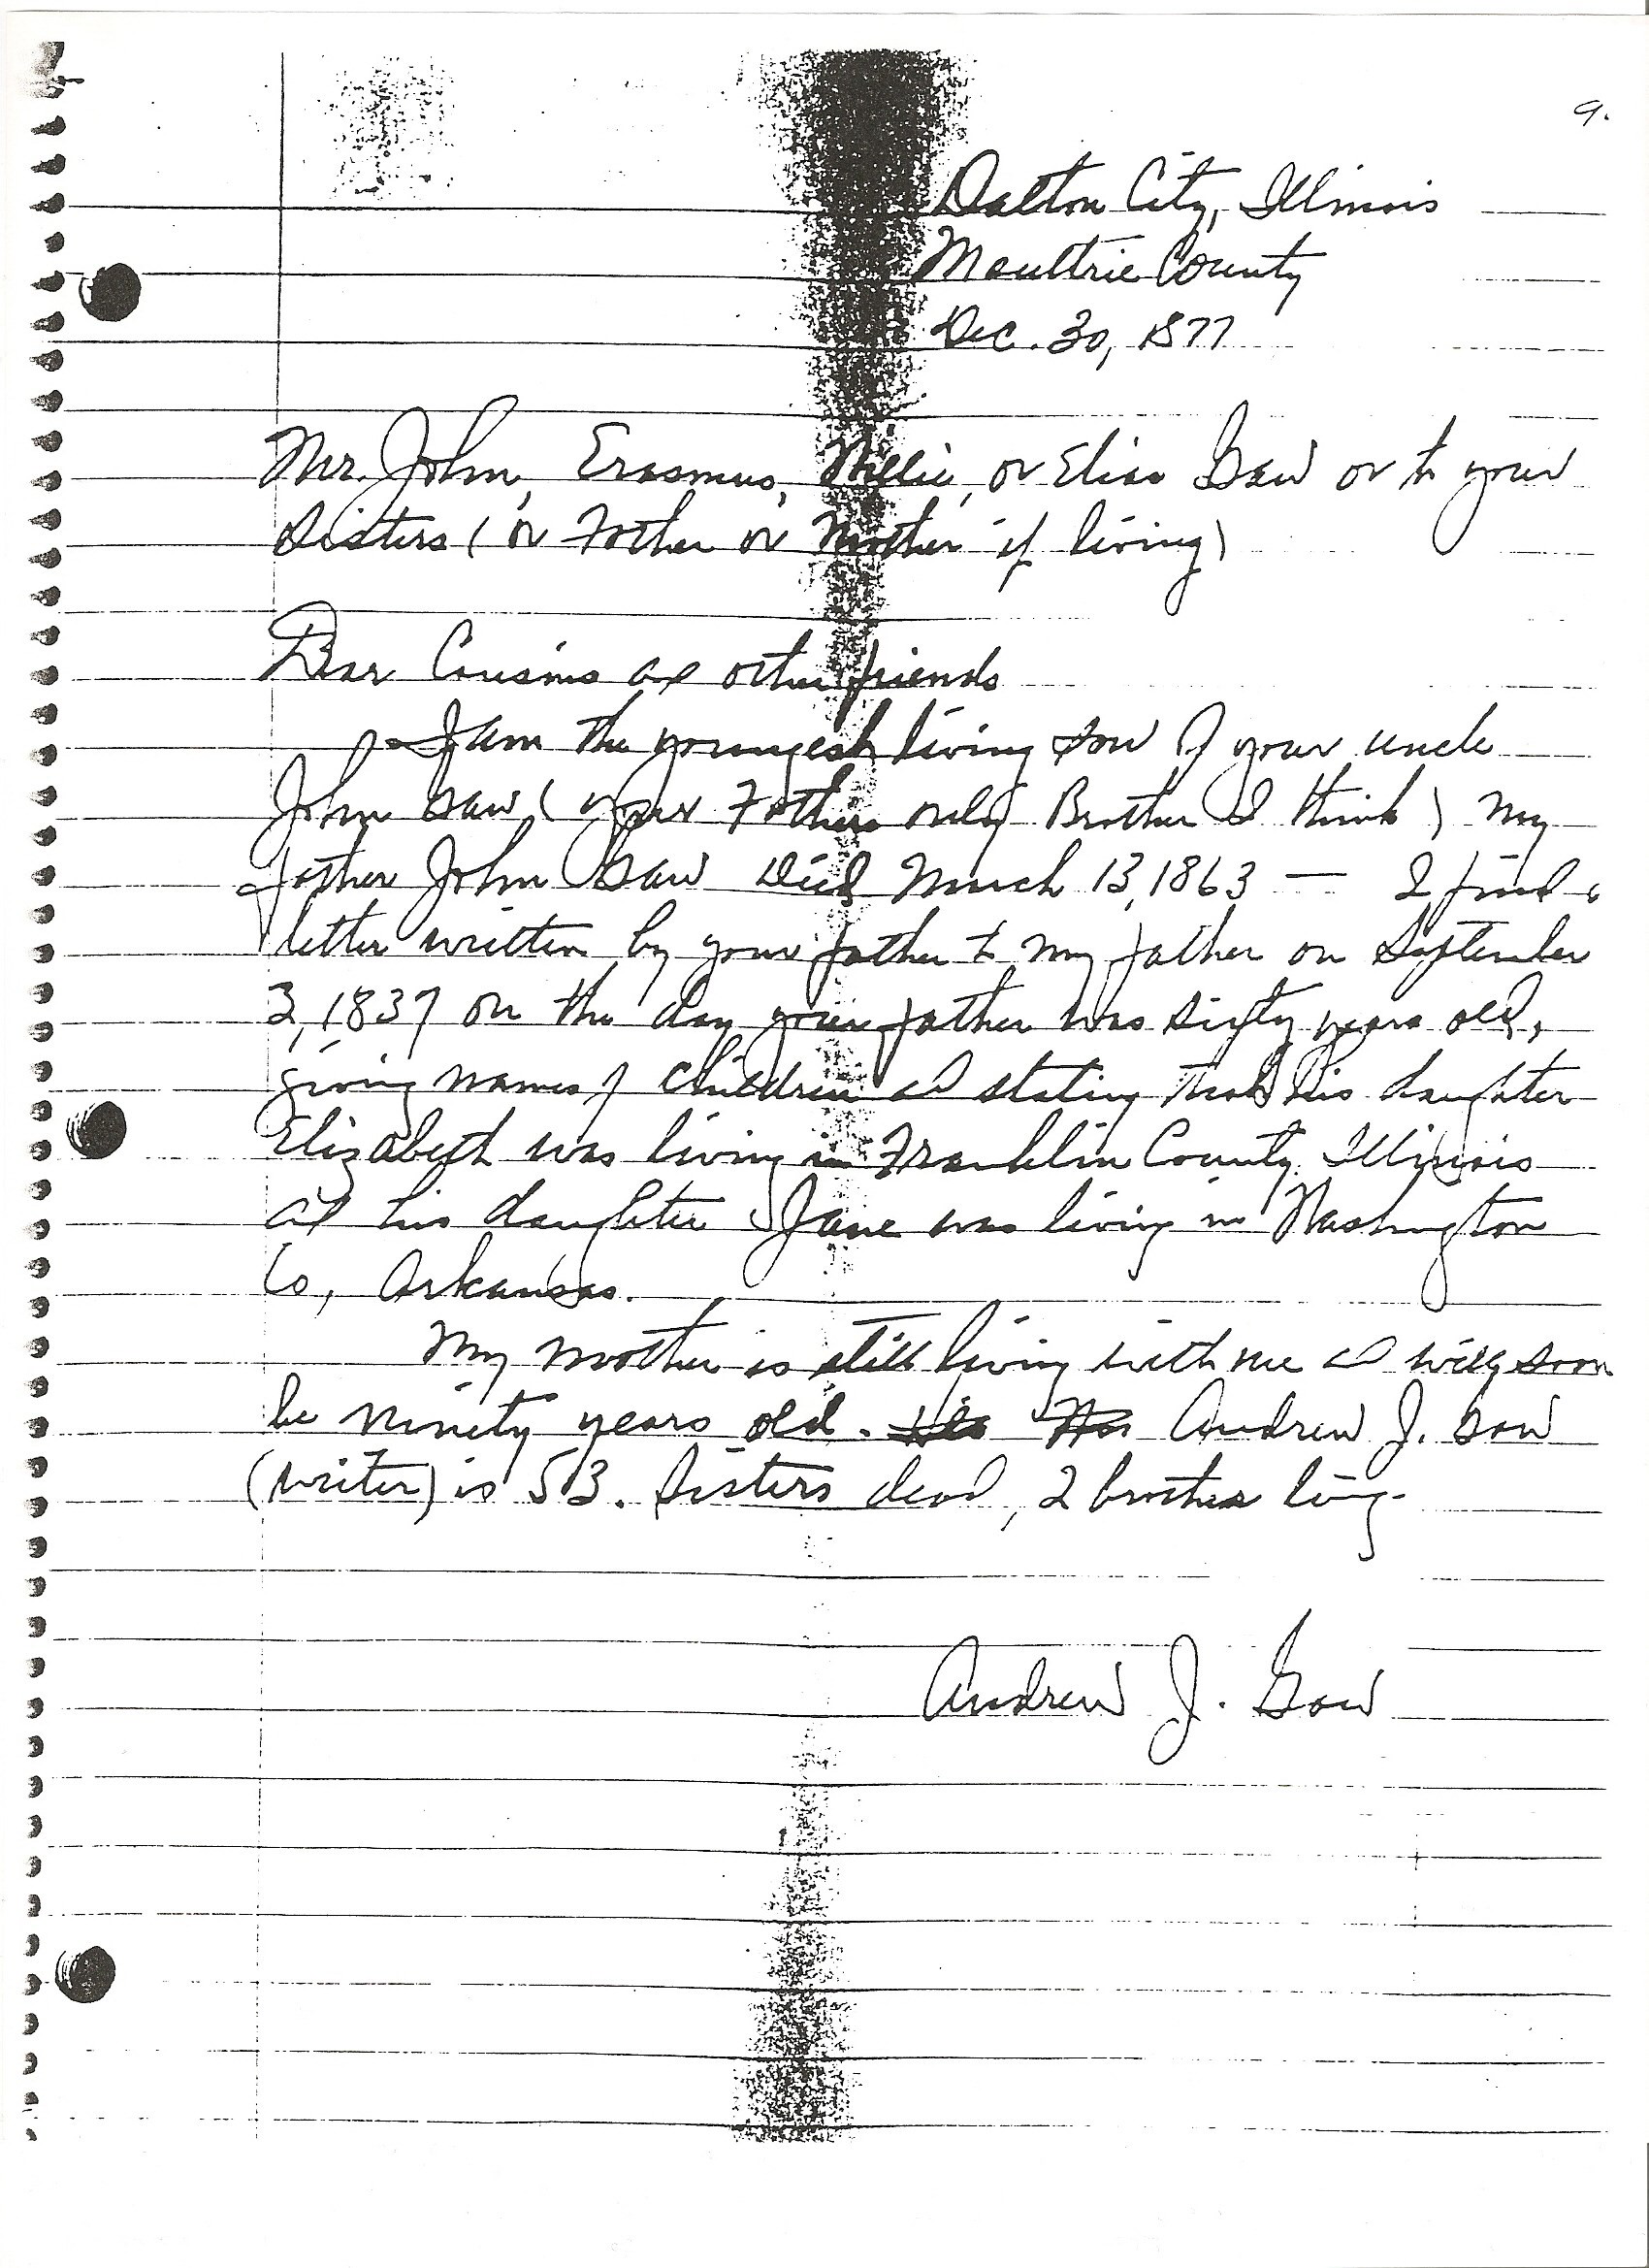 9.
Dalton City, Illinois
Moultrie County
Dec. 30, 1877
Mr. John, Erasmus, or Elias Gaw or to your
Sisters (or Father or Mother if living)
Dear Cousins and other friends
I am the youngest living son of your uncle
John Gaw (your Fathers only Brother I think) My
father John Gaw Died March 13, 1863 — I find a
letter written by your father to my father on September
3, 1837 on the day your father was sixty years old,
giving names of children and stating that his daughter
Elizabeth was living in Franklin County, Illinois
and his daughter Jane was living in Washington
Co, Arkansas.
My mother is still living with me and will soon
be ninety years old. Andrew J. Gaw
(writer) is 53. Sisters dead, 2 brothers living.
Andrew J. Gaw